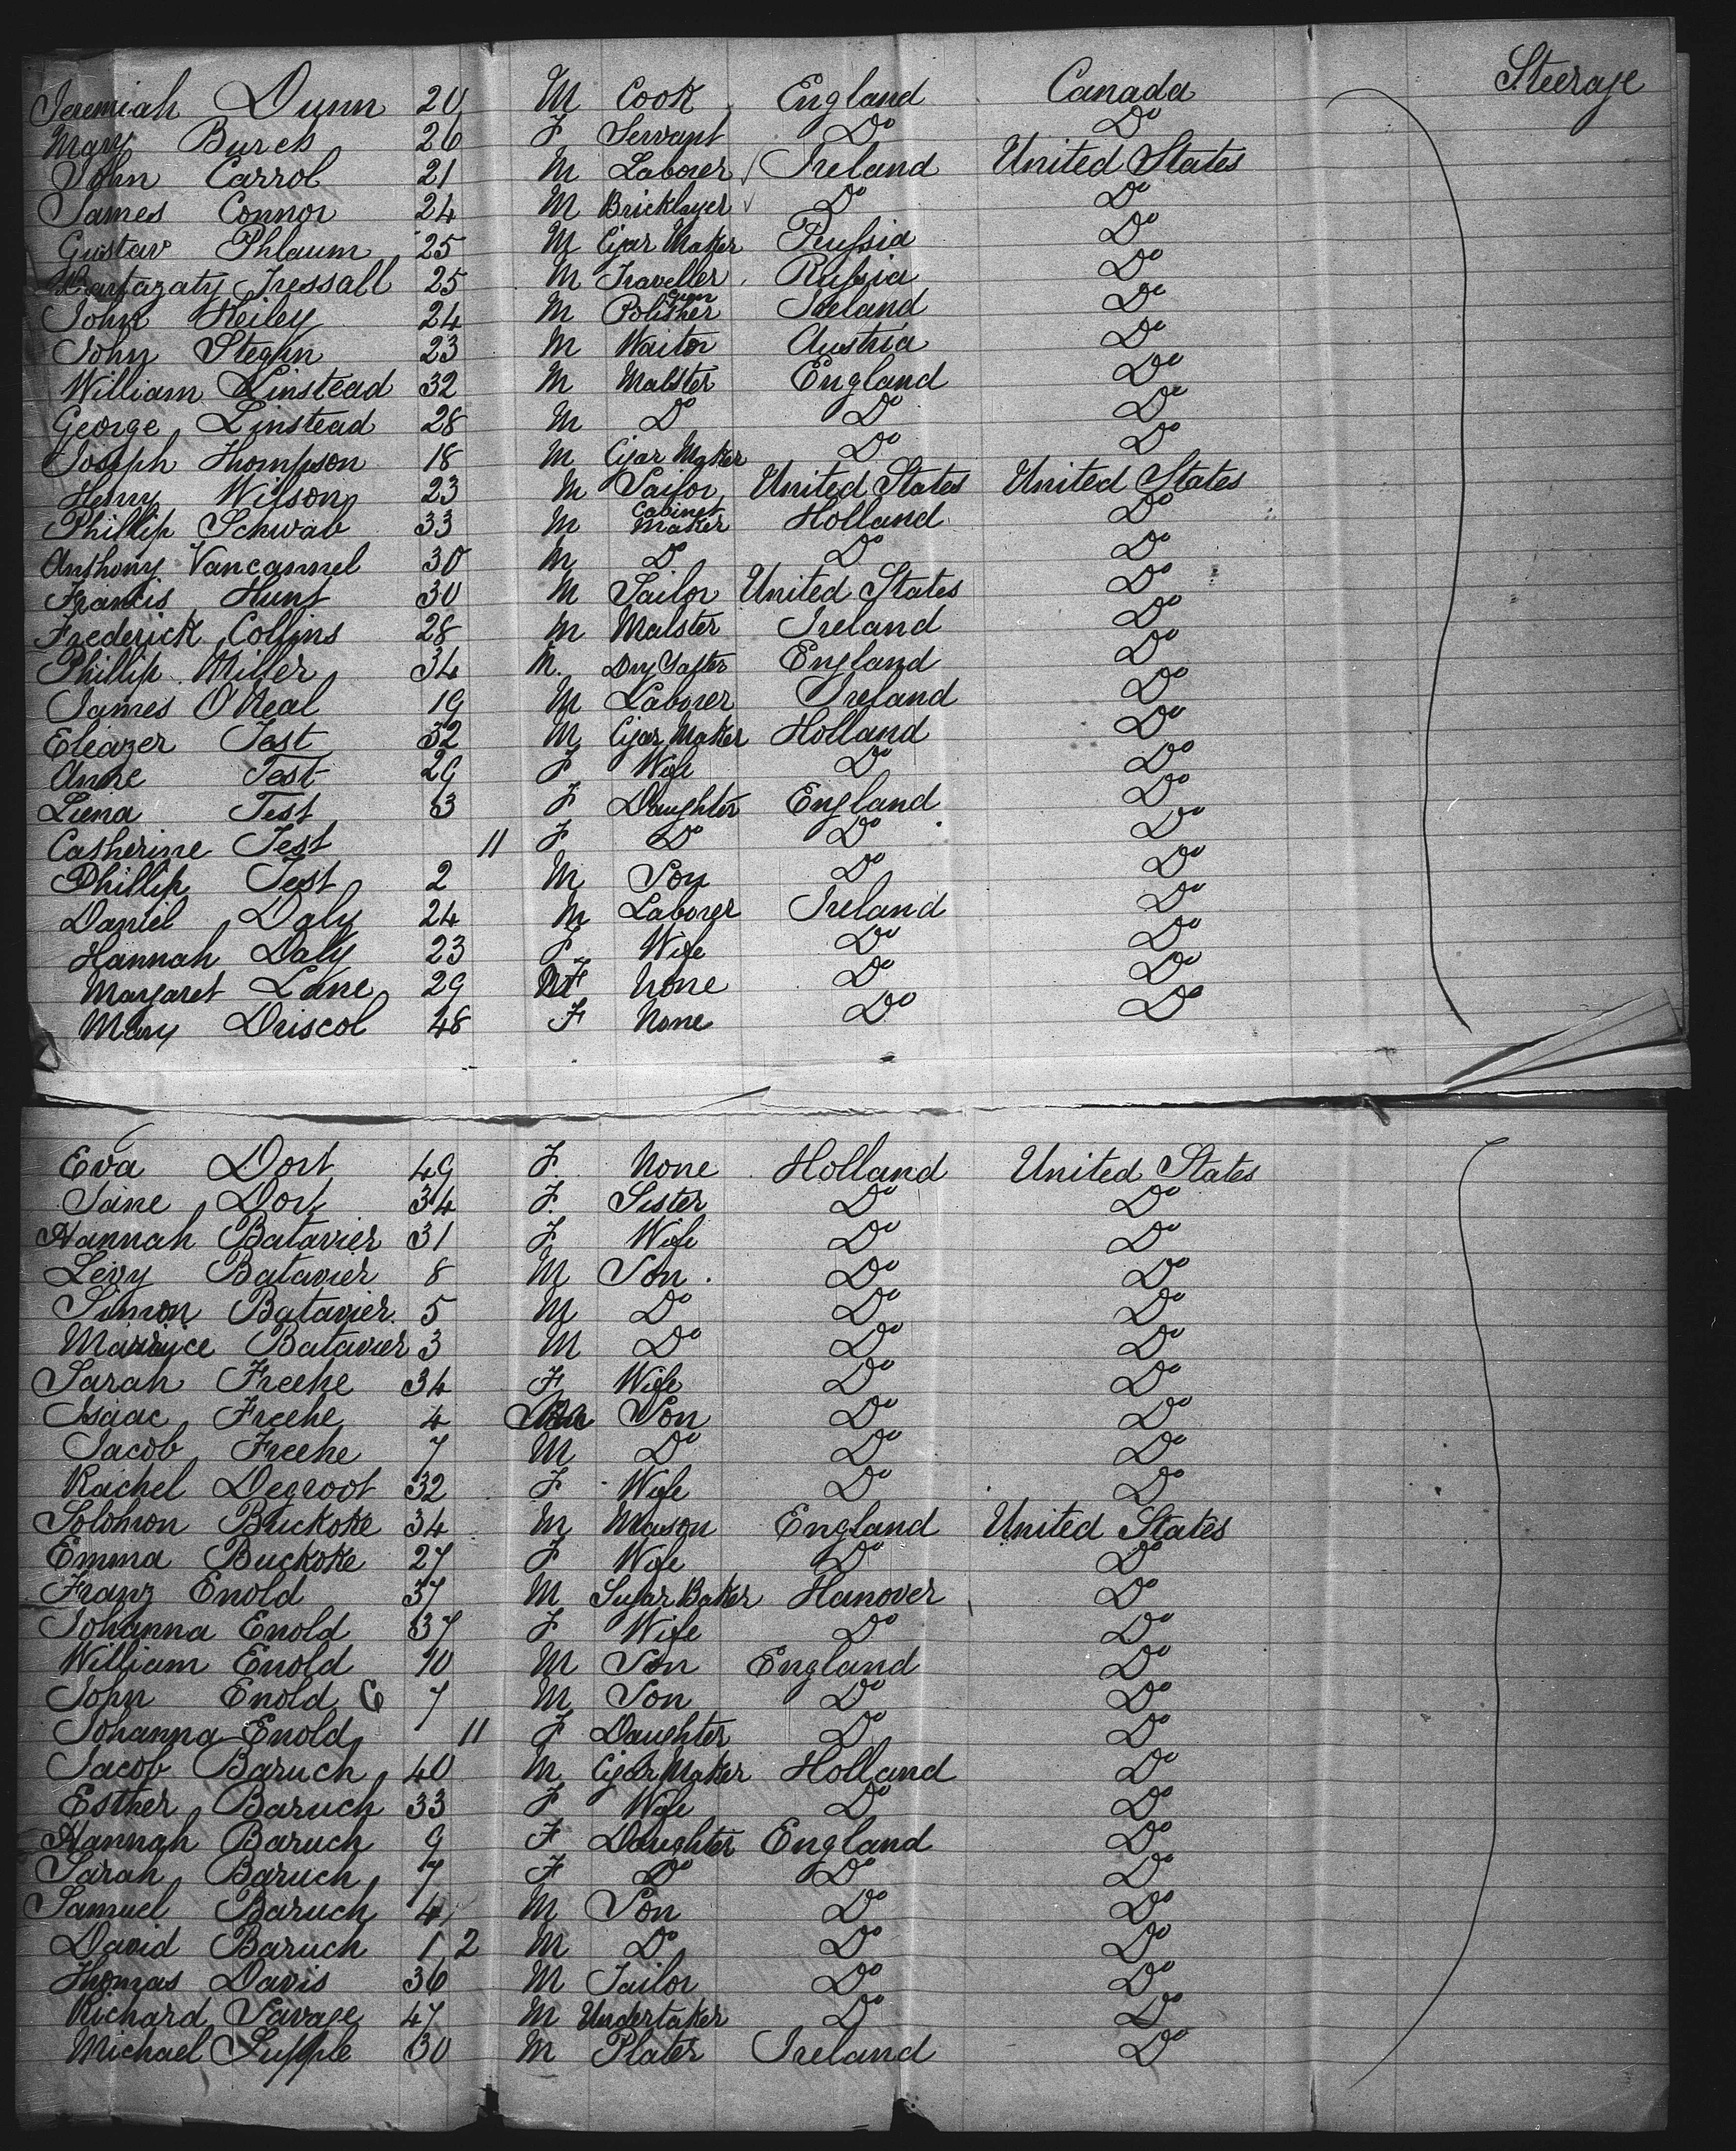 Steerage
Jeremiah Dunn 20 M Cook England Canada
Mary Burch 26 F Servant Do Do
John Carrol 21 M Laborer Ireland United States
James Connor 24 M Bricklayer Do Do
Gustav Phlaum 25 M Cigar Maker Prussia Do
Tressall 25 M Traveller Russia Do
John Keiley 24 M Gun Polisher Ireland Do
John Steghn 23 M Waitor Austria Do
William Linstead 32 M Malster England Do
George Linstead 28 M Do Do Do
Joseph Thompson 18 M Cigar Maker Do Do
Henry Wilson 23 M Sailor United States United States
Phillip Schwab 33 M Cabinet Maker Holland Do
Anthony Vancannel 30 M Do Do Do
Francis Hunt 30 M Sailor United States Do
Frederick Collins 28 M Malster Ireland Do
Phillip Miller 34 M. Dry Salter England Do
James O'Neal 19 M Laborer Ireland Do
Eleazer Test 32 M Cigar Maker Holland Do
Anne Test 29 F Wife Do Do
Liena Test 3 F Daughter England Do
Catherine Test 11 F Do Do Do
Phillip Test 2 M Son Do Do
Daniel Daly 24 M Laborer Ireland Do
Hannah Daly 23 F Wife Do Do
Margaret Lane 29 F None Do Do
Mary Driscol 48 F None Do Do
Eva Dort 49 F. None Holland United States
Jane Dort 34 F. Sister Do Do
Hannah Batavier 31 F Wife Do Do
Levy Batavier 8 M Son Do Do
Simon Batavier 5 M Do Do Do
Maurice Batavier 3 M Do Do Do
Sarah Freehe 34 F Wife Do Do
Isaac Freehe 4 M Son Do Do
Jacob Freehe 7 M Do Do Do
Rachel Degroot 32 F Wife Do Do
Solomon Buckoke 34 M Mason England United States
Emma Buckoke 27 F Wife Do Do
Franz Enold 37 M Sugar Baker Hanover Do
Johanna Enold 37 F Wife Do Do
William Enold 10 M Son England Do
John Enold 7 M Son Do Do
Johanna Enold 11 F Daughter Do Do
Jacob Baruch 40 M Cigar Maker Holland Do
Esther Baruch 33 F Wife Do Do
Hannah Baruch 9 F Daughter England Do
Sarah Baruch 7 F Do Do Do
Samuel Baruch 4 M Son Do Do
David Baruch 1 2 M Do Do Do
Thomas Davis 36 M Tailor Do Do
Richard Savage 47 M Undertaker Do Do
Michael Supple 30 M Plater Ireland Do